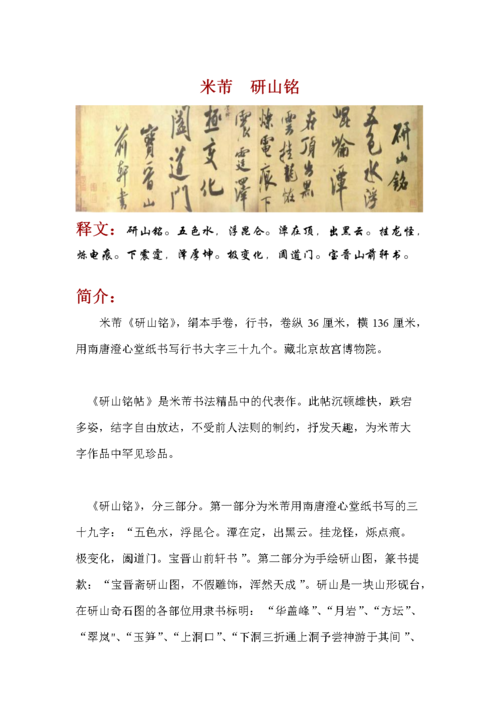 米芾 研山铭
研山銘
五色水浮
崐崘潭
在頂出黑
雲挂龍怪
爍電痕下
震霆澤
極變化
闔道門
寶晉山
前軒書
释文：研山铭。五色水，浮昆仑。潭在顶，出黑云。挂龙怪，
烁电痕。下震霆，泽厚坤。极变化，阖道门。宝晋山前轩书。
简介：
米芾《研山铭》，绢本手卷，行书，卷纵 36 厘米，横 136 厘米，
用南唐澄心堂纸书写行书大字三十九个。藏北京故宫博物院。
《研山铭帖》是米芾书法精品中的代表作。此帖沉顿雄快，跌宕
多姿，结字自由放达，不受前人法则的制约，抒发天趣，为米芾大
字作品中罕见珍品。
《研山铭》，分三部分。第一部分为米芾用南唐澄心堂纸书写的三
十九字：“五色水，浮昆仑。潭在定，出黑云。挂龙怪，烁点痕。
极变化，阖道门。宝晋山前轩书”。第二部分为手绘研山图，篆书提
款：“宝晋斋研山图，不假雕饰，浑然天成”。研山是一块山形砚台，
在研山奇石图的各部位用隶书标明： “华盖峰”、“月岩”、“方坛”、
“翠岚"、“玉笋”、“上洞口”、“下洞三折通上洞予尝神游于其间”、